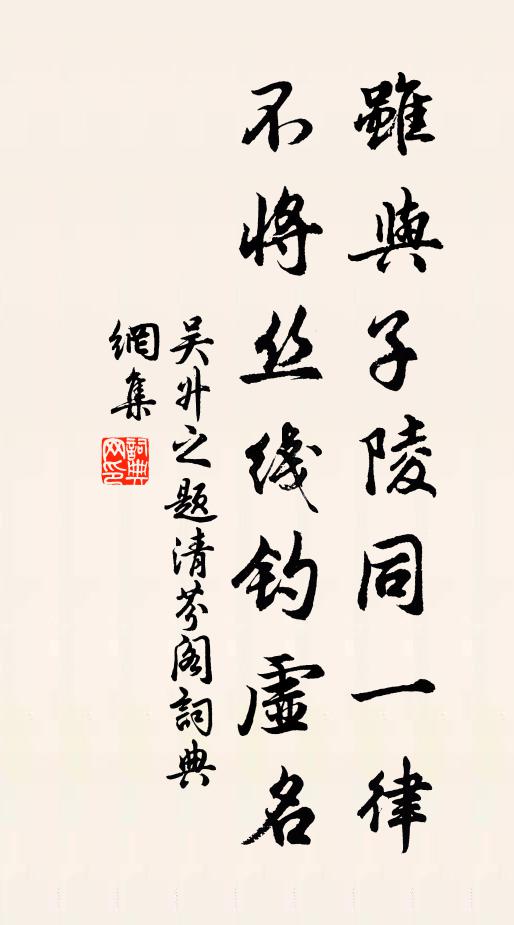 雖與子陵同一律
不將丝线钓虛名
吴升之题清芬阁詞典
網集
詞典
网印